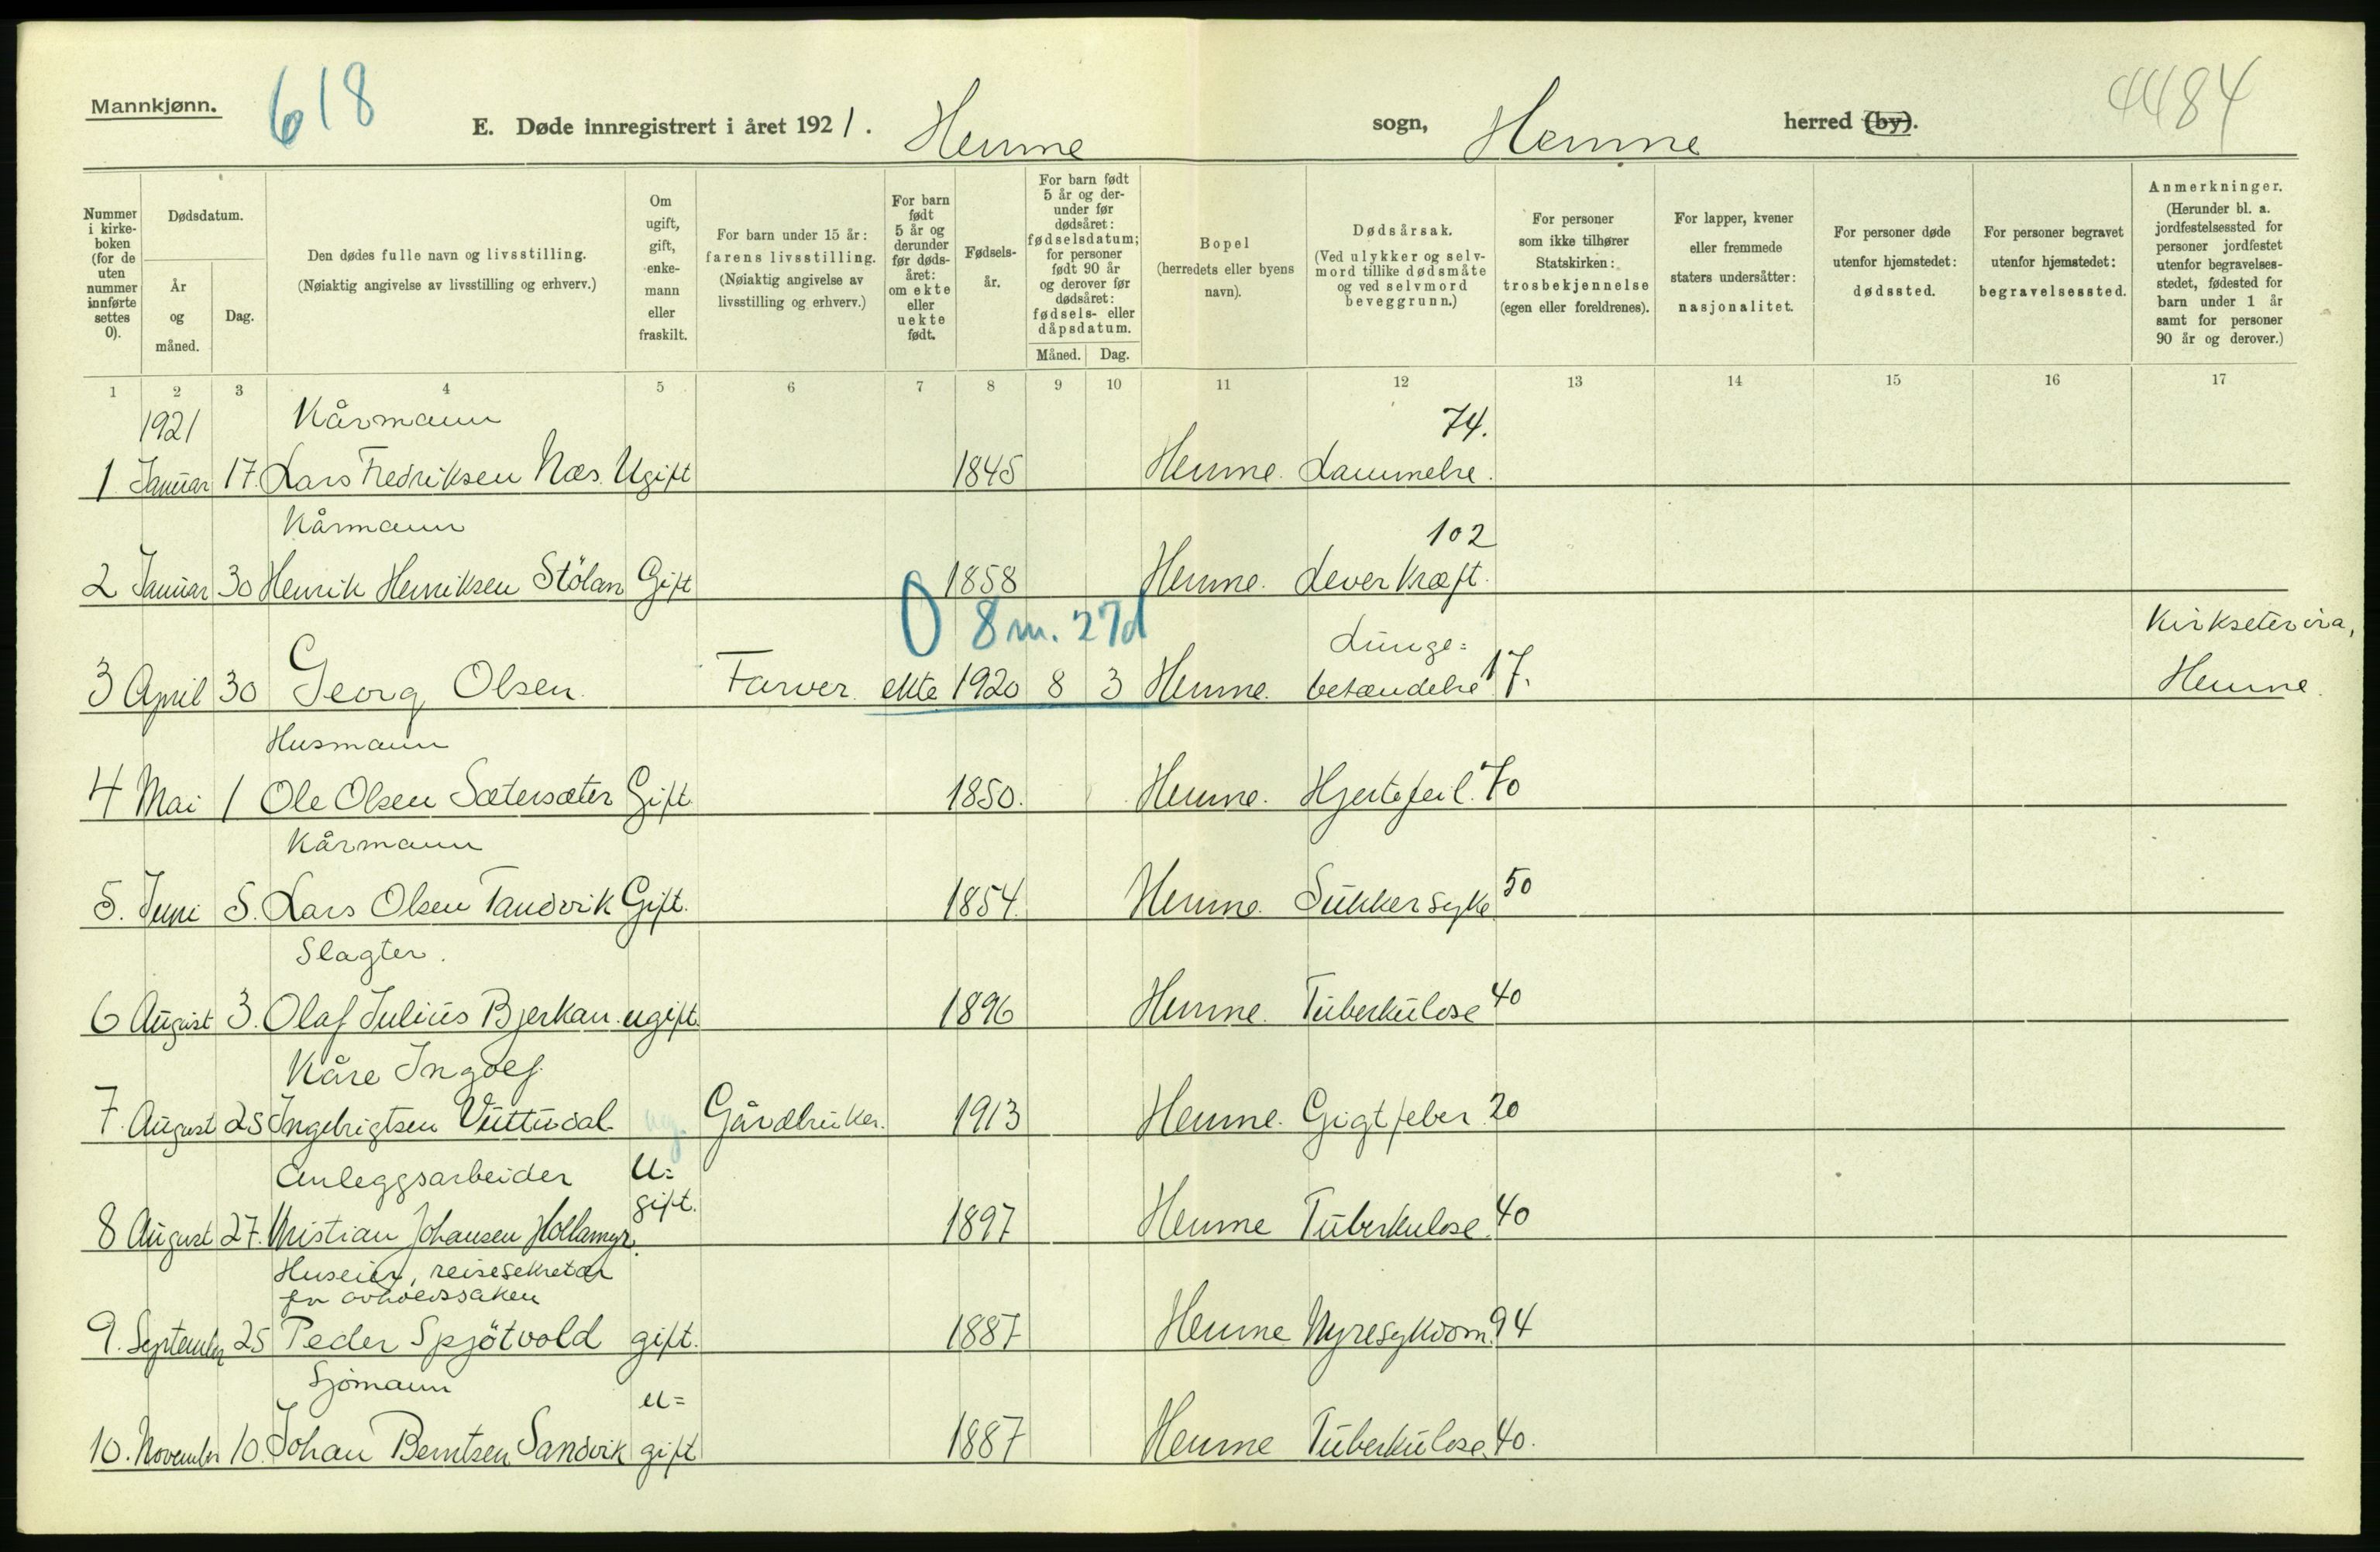 Mannkjønn.
618
E. Døde innregistrert i året 1921. Hemne sogn, Hemne herred (by).
4484
Nummer i kirke-boken (for de uten nummer innførte settes 0).
Dødsdatum.
År og måned.
Dag.
Den dødes fulle navn og livsstilling.
(Nøiaktig angivelse av livsstilling og erhverv.)
Om ugift, gift, enke-mann eller fraskilt.
For barn under 15 år: farens livsstilling. (Nøiaktig angivelse av livsstilling og erhverv.)
For barn født 5 år og derunder før døds-året: om ekte eller uekte født.
Fødsels-år.
For barn født 5 år og der-under før dødsåret: fødselsdatum; for personer født 90 år og derover før dødsåret: fødsels- eller dåpsdatum.
Måned. Dag.
Bopel (herredets eller byens navn).
Dødsårsak. (Ved ulykker og selv-mord tillike dødsmåte og ved selvmord beveggrunn.)
For personer som ikke tilhører Statskirken: trosbekjennelse (egen eller foreldrenes).
For lapper, kvener eller fremmede staters undersåtter: nasjonalitet.
For personer døde utenfor hjemstedet: dødssted.
For personer begravet utenfor hjemstedet: begravelsessted.
Anmerkninger. (Herunder bl. a. jordfestelsessted for personer jordfestet utenfor begravelses-stedet, fødested for barn under 1 år samt for personer 90 år og derover.)
1 2 3 4 5 6 7 8 9 10 11 12 13 14 15 16 17
1921 Kårmann 74.
1 Januar 17. Lars Fredriksen Næs. Ugift 1845 Hemne. Lammelse.
Kårmann 102
2 Januar 30 Henrik Henriksen Stölan Gift 1858 Hemne. Lever kræft.
0 8 m. 27d Lunge= Kirkseterøra,
3 April 30 Georg Olsen. Farver. ekte 1920 8 3 Hemne. betændelse 17. Hemne.
Husmann
4 Mai 1 Ole Olsen Sætersæter Gift 1850. Hemne. Hjertefeil. 70
Kårmann
5. Juni 5. Lars Olsen Tandvik Gift. 1854. Hemne. Sukkersyke 50
Slagter.
6 August 3. Olaf Julius Bjerkan. ugift. 1896 Hemne. Tuberkulose 40
Kåre Ingolf
7. August 25 Ingebrigtsen Vuttudal ug. Gårdbruker. 1913 Hemne. Gigtfeber 20
Anleggsarbeider U=
8 August 27. Kristian Johansen Hollamyr. gift. 1897 Hemne Tuberkulose. 40
Huseier, reisesekretær
for avholdssaken
9. September 25 Peder Spjötvold gift. 1887 Hemne Nyresykdom. 94
Sjömann u=
10. November 10. Johan Berntsen Sandvik gift 1887 Hemne Tuberkulose. 40.